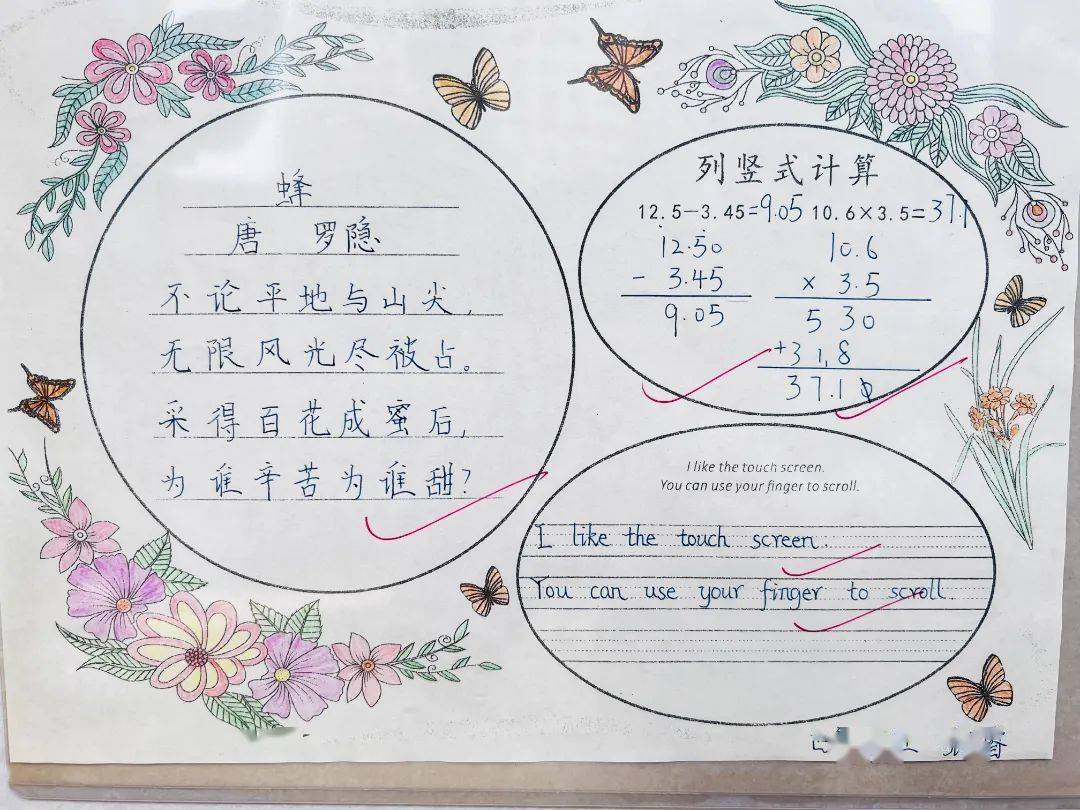 蜂
唐 罗隐
不论平地与山尖,
无限风光尽被占。
采得百花成蜜后,
为谁辛苦为谁甜?
列竖式计算
12.5-3.45=9.05 10.6×3.5=37.1
12.50
- 3.45
9.05
10.6
× 3.5
530
+318
37.10
I like the touch screen.
You can use your finger to scroll.
I like the touch screen.
You can use your finger to scroll.